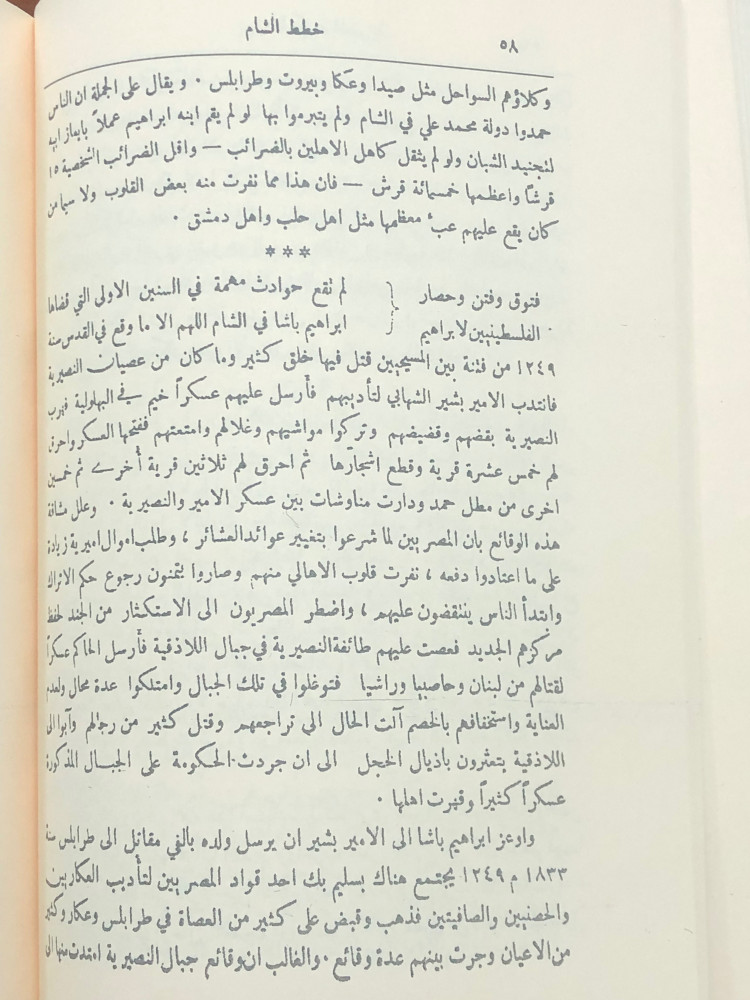 ٥٨
خطط الشام
وكلاؤهم السواحل مثل صيدا وعكا وبيروت وطرابلس . ويقال على الجملة ان الناس
حمدوا دولة محمد علي في الشام ولم يتبرموا بها لو لم يقم ابنه ابراهيم عملاً بايعاز ابيه
لتجنيد الشبان ولو لم يثقل كاهل الاهلين بالضرائب — واقل الضرائب الشخصية ١٥
قرشاً واعظمها خمسمائة قرش — فان هذا مما نفرت منه بعض القلوب ولا سيما من
كان يقع عليهم عبء معظمها مثل اهل حلب واهل دمشق .
***
فتوق وفتن وحصار } لم تقع حوادث مهمة في السنين الاولى التي قضاها
الفلسطينيين لابراهيم } ابراهيم باشا في الشام اللهم الا ما وقع في القدس سنة
١٢٤٩ من فتنة بين المسيحيين قتل فيها خلق كثير وما كان من عصيان النصيرية
فانتدب الامير بشير الشهابي لتأديبهم فأرسل عليهم عسكراً خيم في البهلولية فهرب
النصيرية بقضهم وقضيضهم وتركوا مواشيهم وغلالهم وامتعتهم ففتحها العسكر واحرق
لهم خمس عشرة قرية وقطع اشجارها ثم احرق لهم ثلاثين قرية أخرى ثم خمسين
اخرى من مطل حمد ودارت مناوشات بين عسكر الامير والنصيرية . وعلل مشاقة
هذه الوقائع بان المصريين لما شرعوا بتغيير عوائد العشائر ، وطلب اموال اميرية زيادة
على ما اعتادوا دفعه ، نفرت قلوب الاهالي منهم وصاروا يتمنون رجوع حكم الاتراك
وابتدأ الناس ينتقضون عليهم ، واضطر المصريون الى الاستكثار من الجند لحفظ
مركزهم الجديد فعصت عليهم طائفة النصيرية في جبال اللاذقية فأرسل الحاكم عسكراً
لقتالهم من لبنان وحاصبيا وراشيا فتوغلوا في تلك الجبال وامتلكوا عدة محال ولعدم
العناية واستخفافهم بالخصم آلت الحال الى تراجعهم وقتل كثير من رجالهم وآبوا الى
اللاذقية يتعثرون بأذيال الخجل الى ان جردت الحكومة على الجبال المذكورة
عسكراً كثيراً وقهرت اهلها .
واوعز ابراهيم باشا الى الامير بشير ان يرسل ولده بالفي مقاتل الى طرابلس سنة
١٨٣٣ م ١٢٤٩ يجتمع هناك بسليم بك احد قواد المصريين لتأديب العكاريين
والحصنيين والصافيتين فذهب وقبض على كثير من العصاة في طرابلس وعكار وكثير
من الاعيان وجرت بينهم عدة وقائع . والغالب ان وقائع جبال النصيرية امتدت منها الى